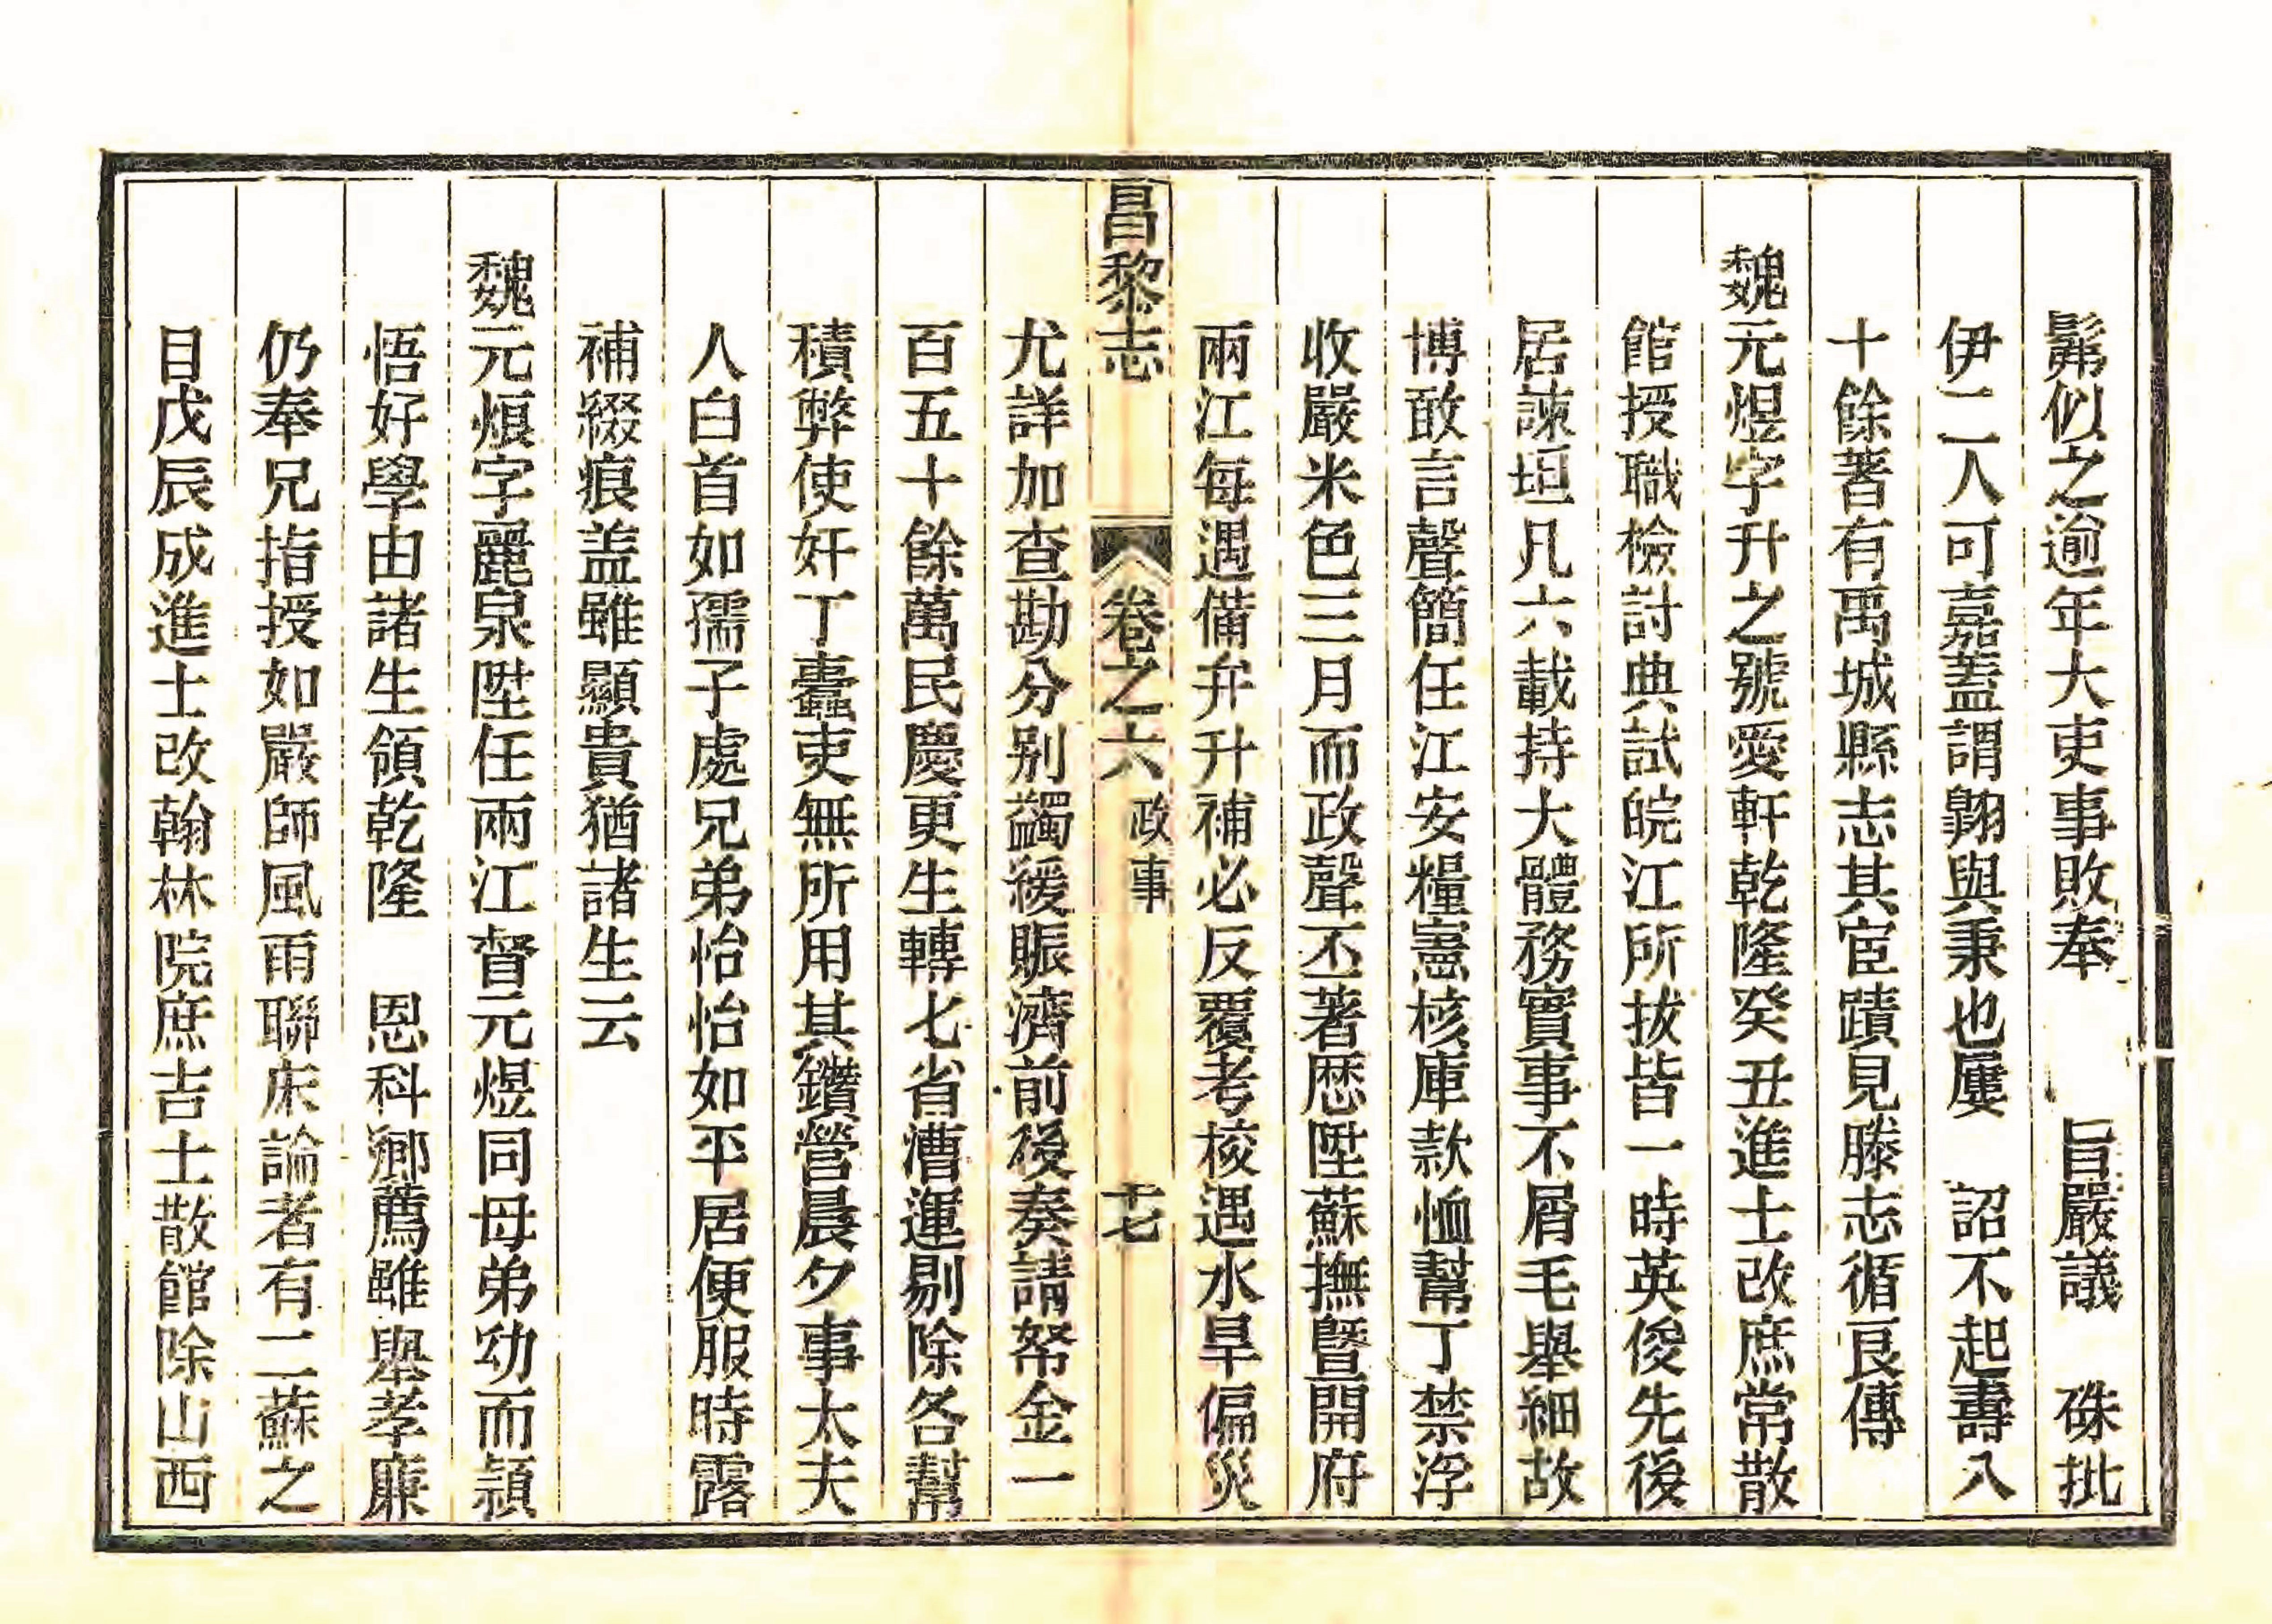 髴似之逾年大吏事敗奉　旨嚴議　硃批
伊二人可嘉蓋謂翺與秉也屢　詔不起壽八
十餘著有禹城縣志其宦蹟見滕志循良傳
魏元煜字升之號愛軒乾隆癸丑進士改庶常散
館授職檢討典試皖江所拔皆一時英俊先後
居諫垣凡六載持大體務實事不屑毛舉細故
博敢言聲簡任江安糧憲核庫款恤幫丁禁浮
收嚴米色三月而政聲丕著歴陞蘇撫暨開府
兩江每遇備弁升補必反覆考校遇水旱偏災
昌黎志　卷之六　政事　十七
尤詳加查勘分别蠲緩賑濟前後奏請帑金一
百五十餘萬民慶更生轉七省漕運剔除各幫
積弊使奸丁蠹吏無所用其鑽營晨夕事太夫
人白首如孺子處兄弟怡怡如平居便服時露
補綴痕盖雖顯貴猶諸生云
魏元烺字麗泉陞任兩江督元煜同母弟幼而頴
悟好學由諸生領乾隆　恩科鄉薦雖舉孝廉
仍奉兄指授如嚴師風雨聯床論者有二蘇之
目戊辰成進士改翰林院庶吉士散館除山西